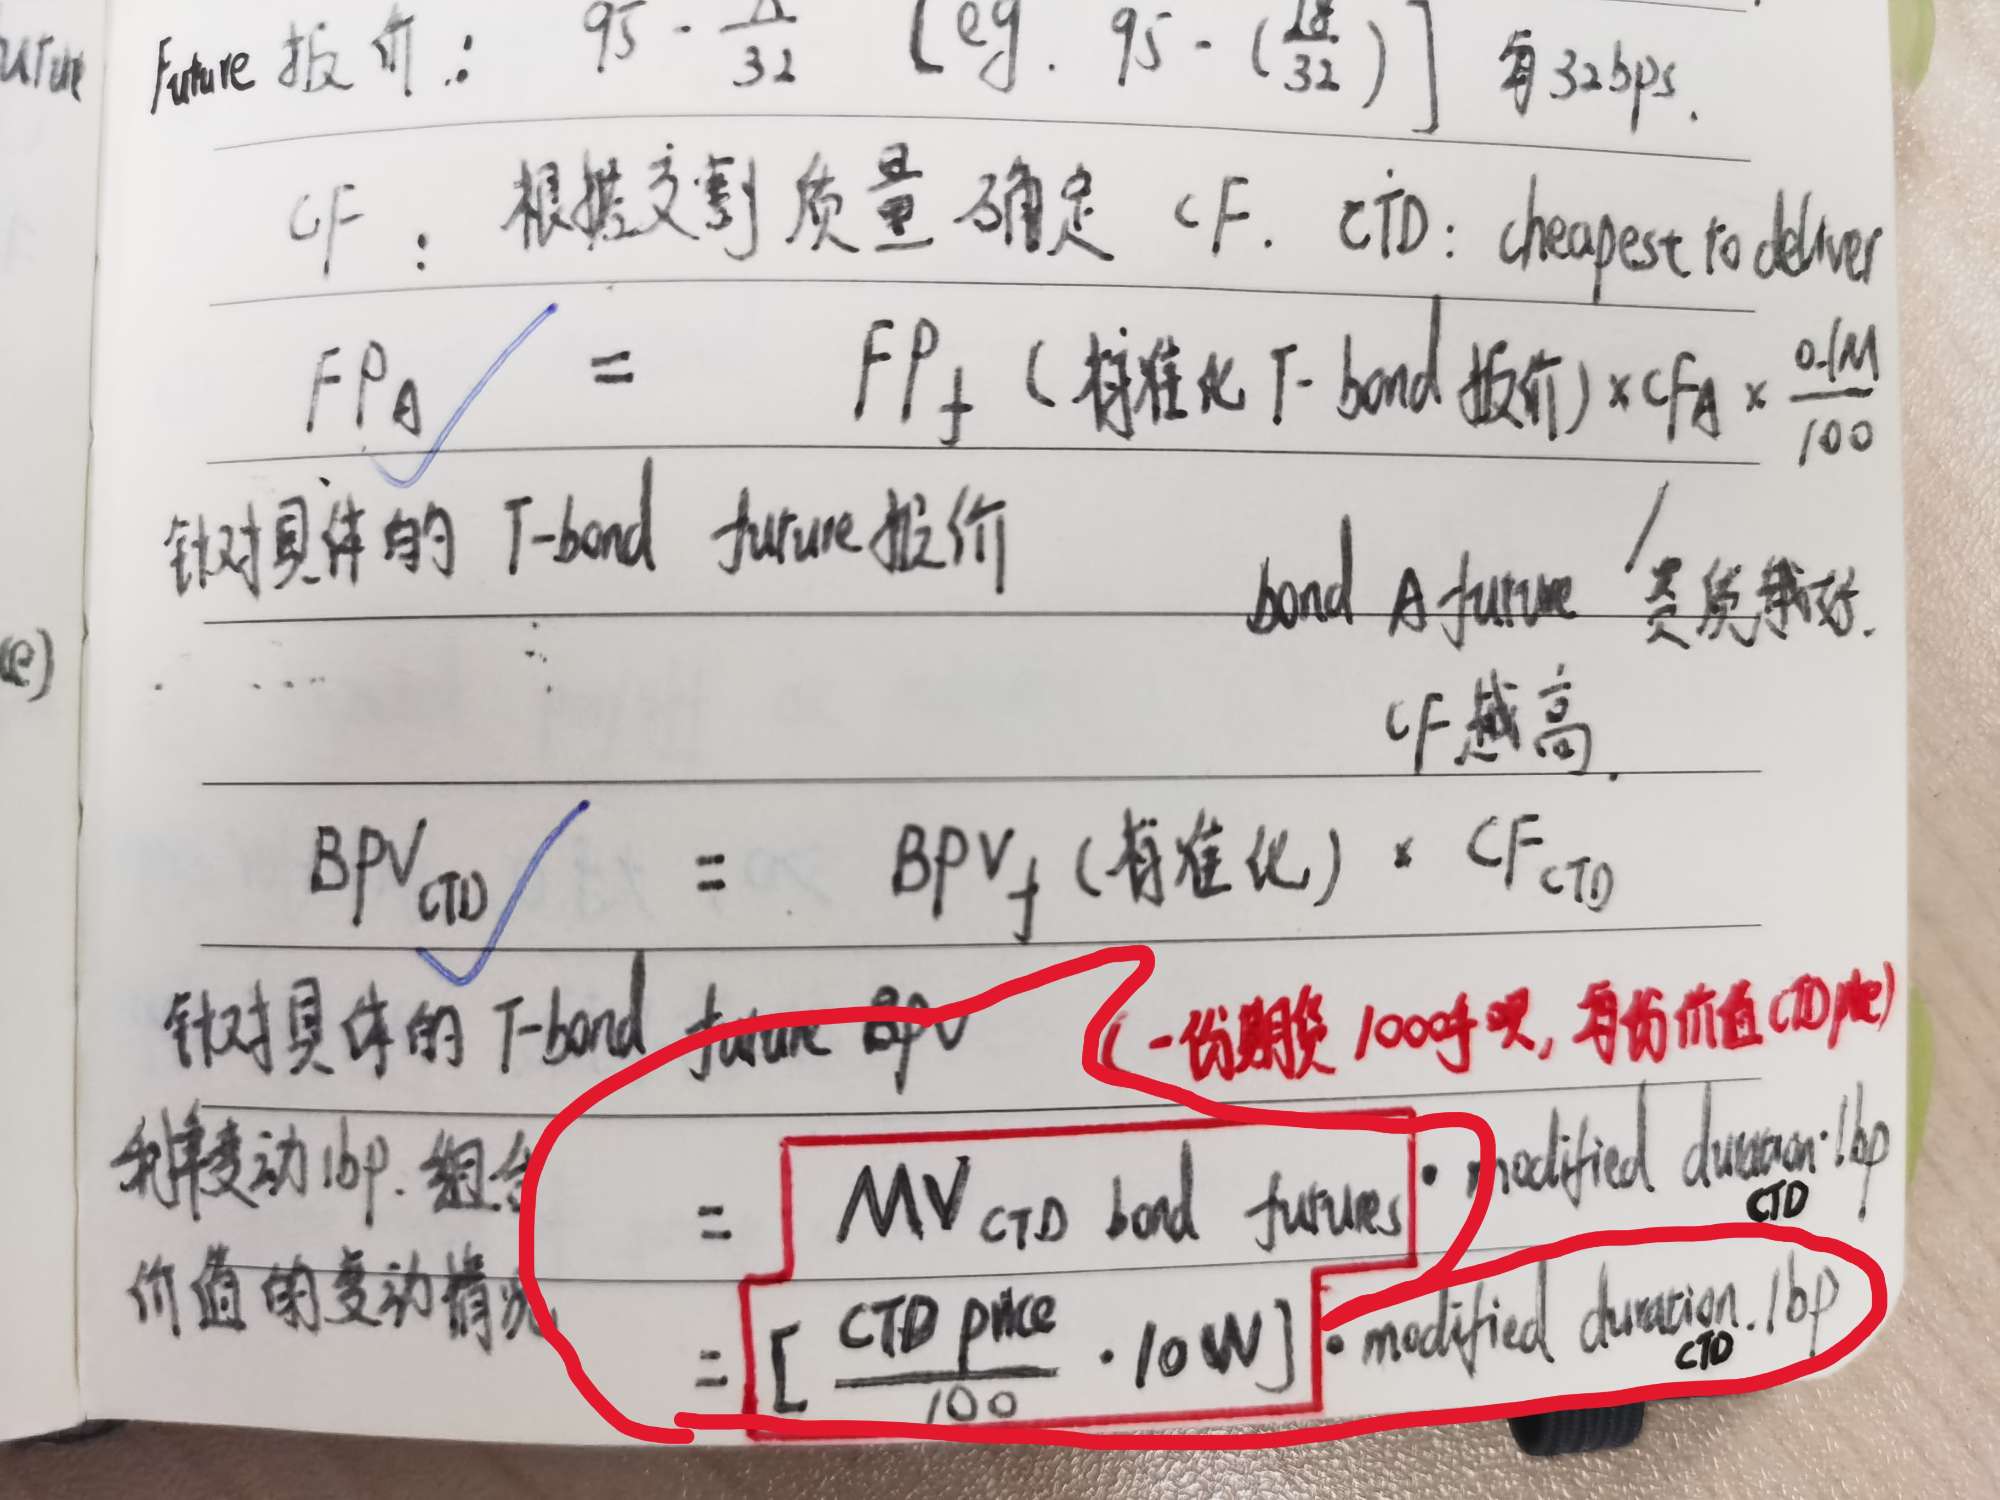 uture
Future 报价: 95 - /32 [eg. 95 - (18/32)] 每32bps.
CF: 根据交割质量确定 CF. CTD: cheapest to deliver
FP_A = FP_f (标准化 T-bond 报价) × CF_A × 0.1M/100
针对具体的 T-bond future 报价
bond A future / 资质越好.
e)
CF越高.
BPV_CTD = BPV_f (标准化) × CF_CTD
针对具体的 T-bond future BPV (一份期货 1000手呗, 每份价值 CTD price)
利率变动1bp. 组合 = MV_CTD bond futures · modified duration_CTD · 1bp
价值的变动情况 = [CTD price/100 · 10W] · modified duration_CTD . 1bp